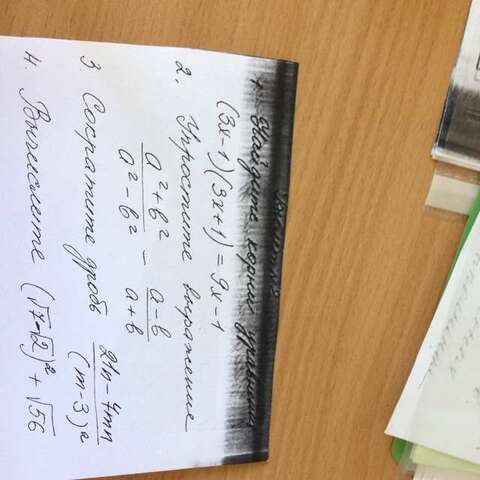 1. Найдите корни уравнения
(3x-1)(3x+1) = 9x-1
2. Упростите выражение
\frac{a²+b²}{a²-b²} - \frac{a-b}{a+b}
3. Сократите дробь \frac{21n-4mn}{(m-3)²}
4. Вычислите (√7-√2)² + √56